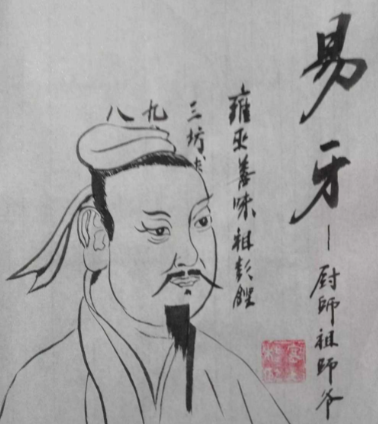 易牙—厨師祖師爷
雍巫善味祖彭
三坊
九
八